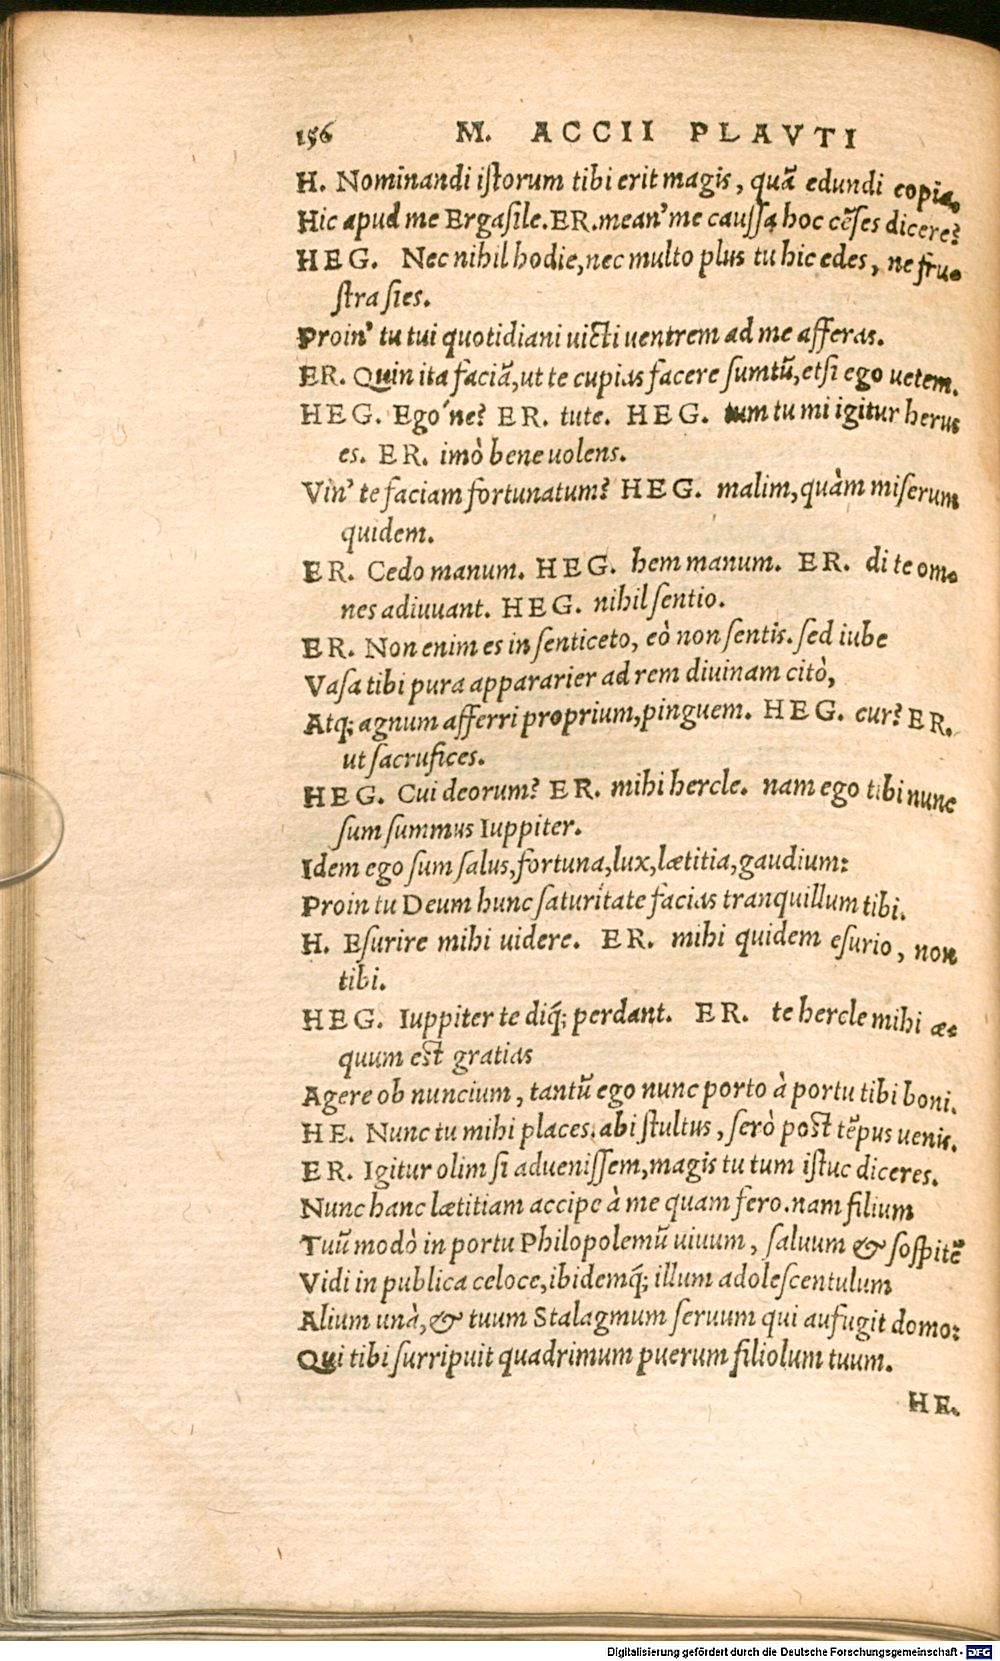 156 M. ACCII PLAVTI
H. Nominandi iſtorum tibi erit magis, quã edundi copia.
Hic apud me Ergaſile. ER. mean' me cauſſa hoc cẽſes dicere?
HEG. Nec nihil hodie, nec multo plus tu hic edes, ne fru-
ſtra ſies.
Proin' tu tui quotidiani uicti uentrem ad me afferas.
ER. Quin ita faciã, ut te cupias facere ſumtũ, etſi ego uetem.
HEG. Ego'ne? ER. tute. HEG. tum tu mi igitur herus
es. ER. imò bene uolens.
Vin' te faciam fortunatum? HEG. malim, quàm miſerum
quidem.
ER. Cedo manum. HEG. hem manum. ER. di te om-
nes adiuuant. HEG. nihil ſentio.
ER. Non enim es in ſenticeto, eò non ſentis. ſed iube
Vaſa tibi pura appararier ad rem diuinam citò,
Atq; agnum afferri proprium, pinguem. HEG. cur? ER.
ut ſacrufices.
HEG. Cui deorum? ER. mihi hercle. nam ego tibi nunc
ſum ſummus Iuppiter.
Idem ego ſum ſalus, fortuna, lux, lætitia, gaudium:
Proin tu Deum hunc ſaturitate facias tranquillum tibi.
H. Eſurire mihi uidere. ER. mihi quidem eſurio, non
tibi.
HEG. Iuppiter te diq́; perdant. ER. te hercle mihi æ-
quum eſt gratias
Agere ob nuncium, tantũ ego nunc porto à portu tibi boni.
HE. Nunc tu mihi places. abi ſtultus, ſerò poſt tẽpus uenis.
ER. Igitur olim ſi adueniſſem, magis tu tum iſtuc diceres.
Nunc hanc lætitiam accipe à me quam fero. nam filium
Tuũ modò in portu Philopolemũ uiuum, ſaluum & ſoſpitẽ
Vidi in publica celoce, ibidemq́; illum adoleſcentulum
Alium unà, & tuum Stalagmum ſeruum qui aufugit domo:
Qui tibi ſurripuit quadrimum puerum filiolum tuum.
HE.
Digitalisierung gefördert durch die Deutsche Forschungsgemeinschaft - DFG